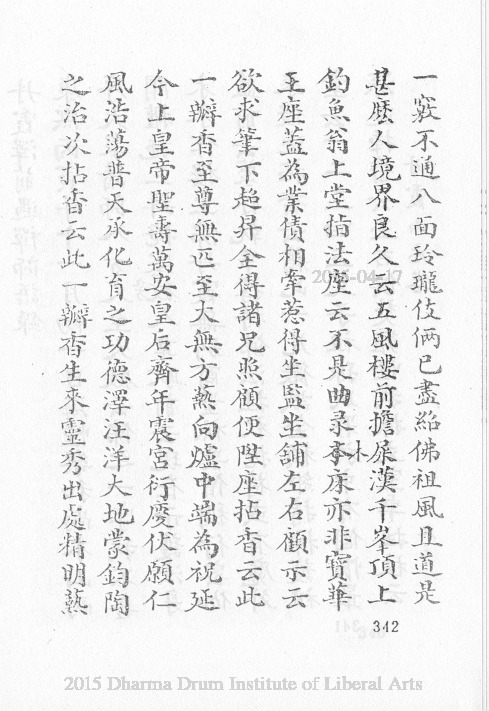 一竅不通八面玲瓏伎倆已盡紹佛祖風且道是
甚麼人境界良久云五風樓前擔屎漢千峯頂上
釣魚翁上堂指法座云不是曲彔木床亦非寶華
王座蓋為業債相牽惹得坐監坐舖左右顧示云
欲求筆下超昇全得諸兄照顧便陞座拈香云此
一瓣香至尊無匹至大無方爇向爐中端為祝延
今上皇帝聖壽萬安皇后齊年震宮衍慶伏願仁
風浩蕩普天承化育之功德澤汪洋大地蒙鈞陶
之治次拈香云此一瓣香生來靈秀出處精明爇
342
2015 Dharma Drum Institute of Liberal Arts